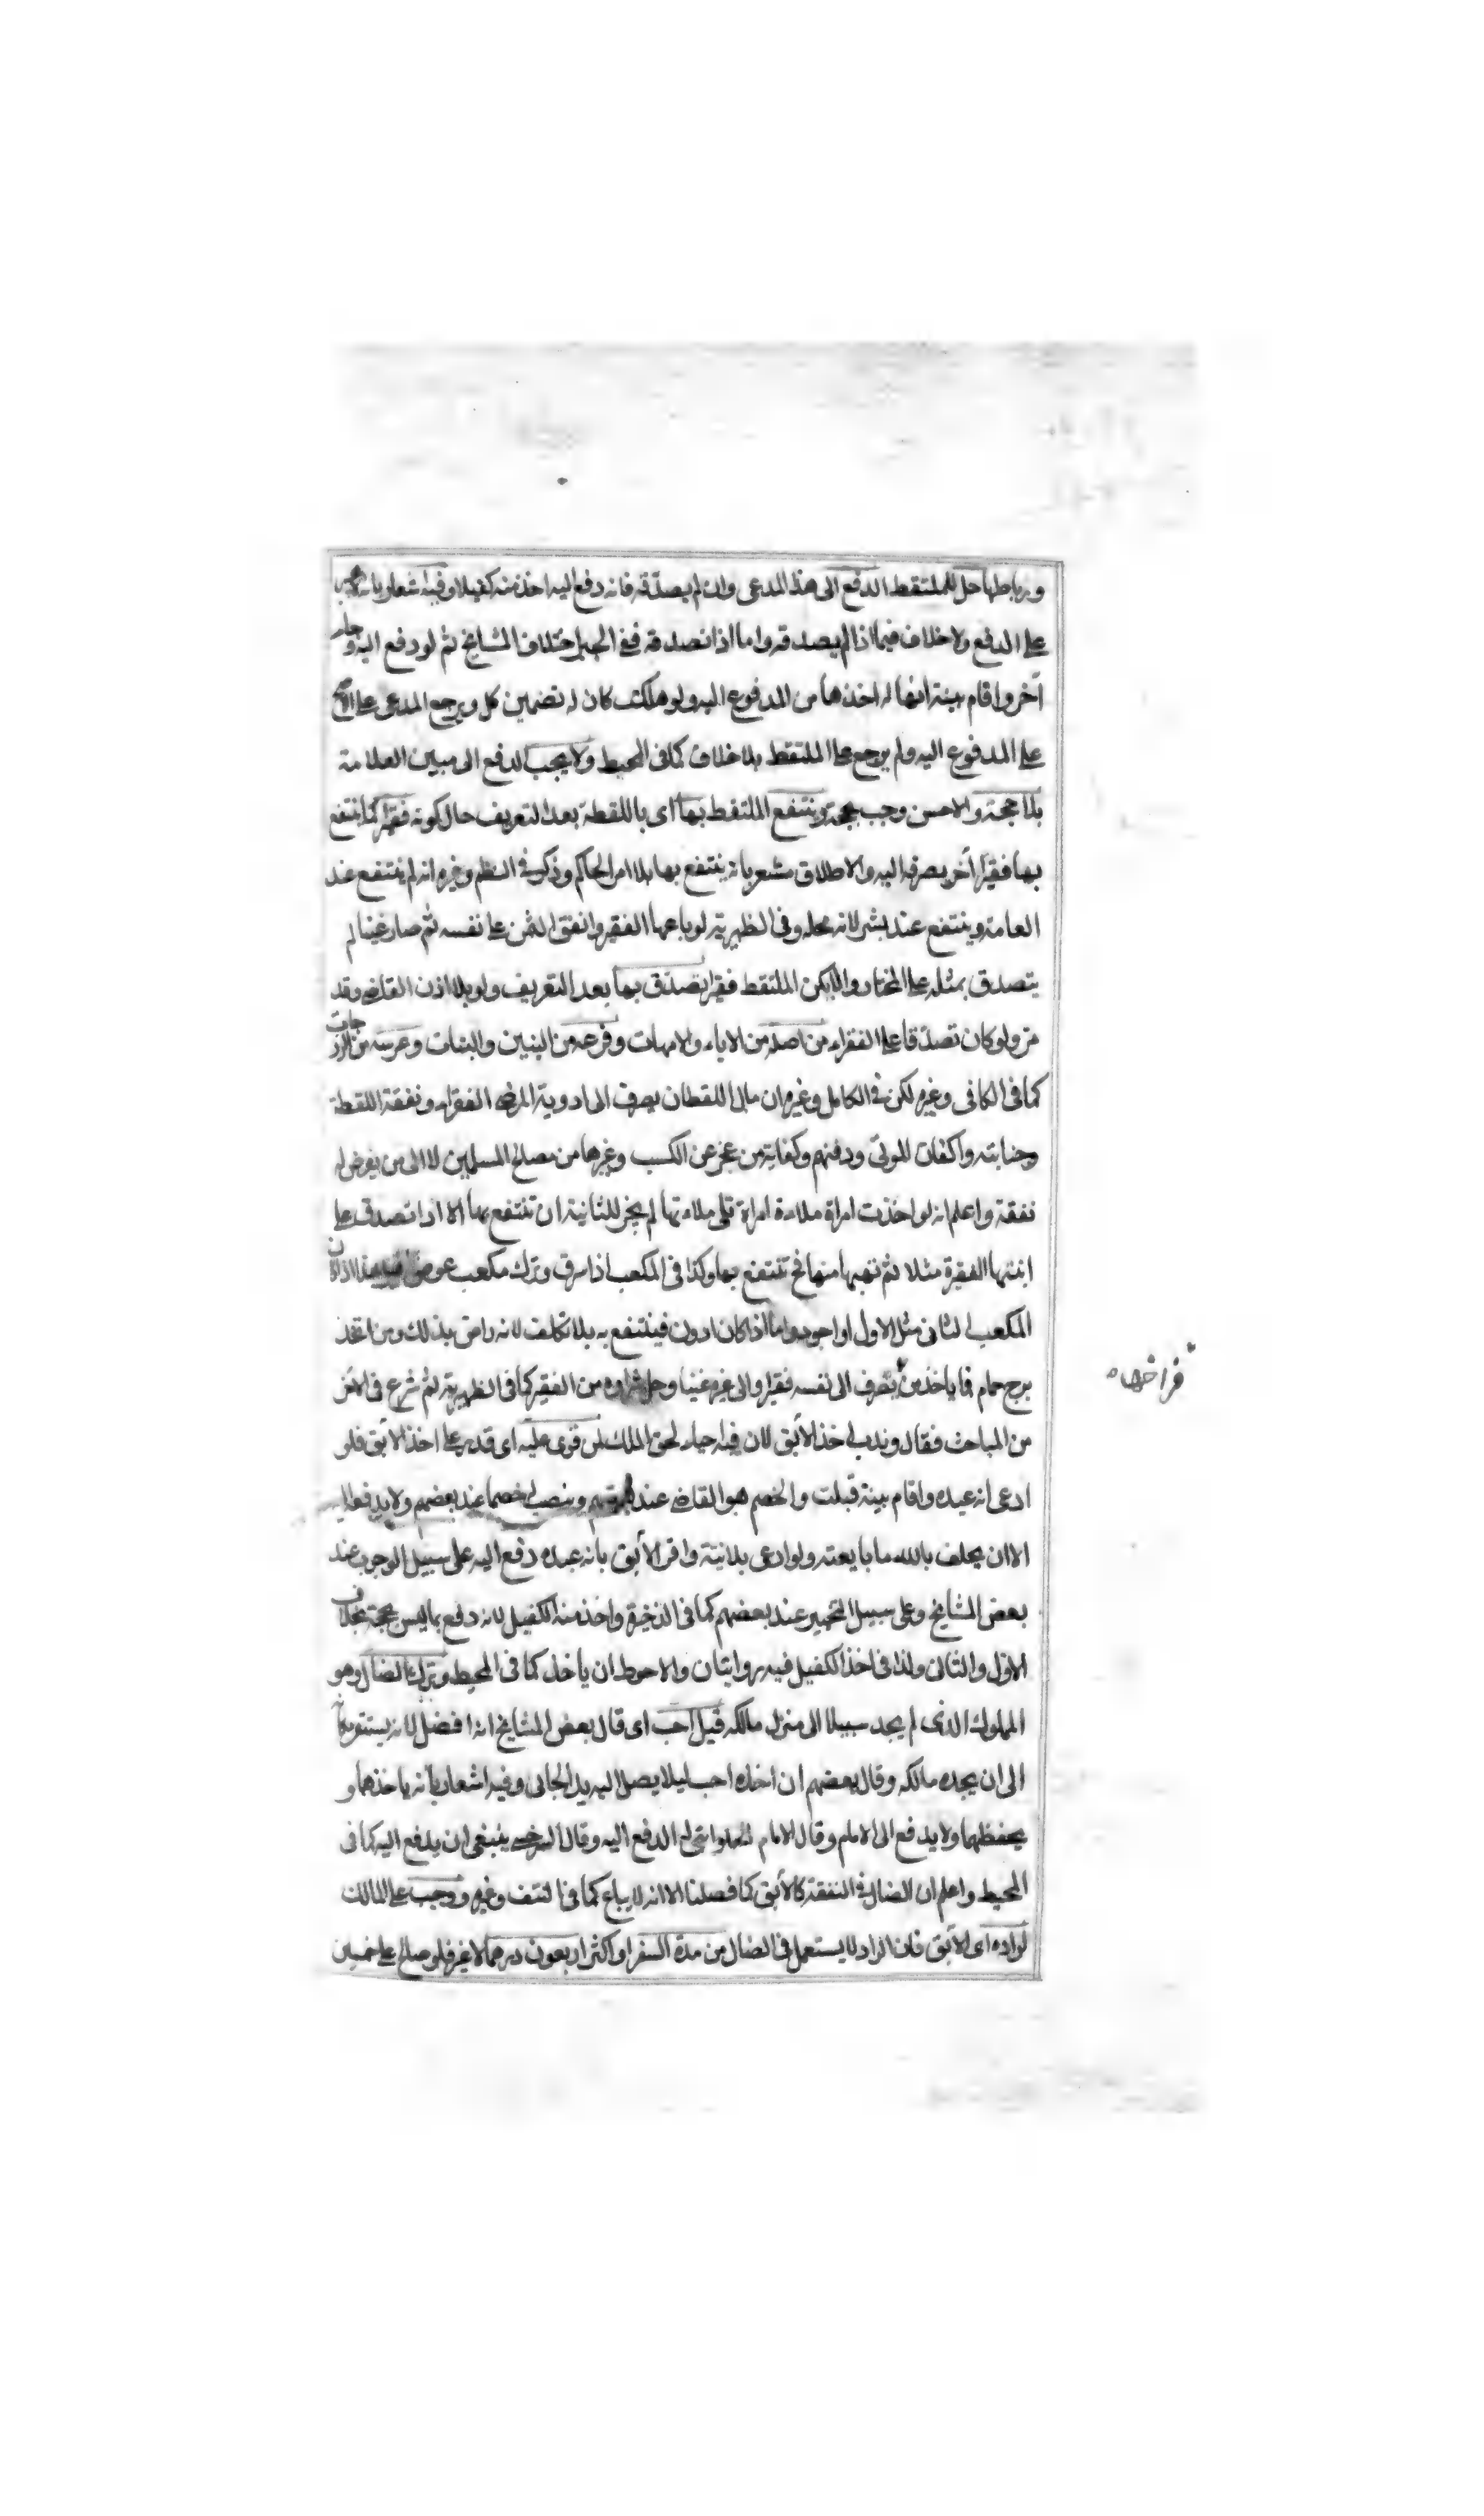 ورباطها حل للملتقط الدفع الى هذا المدعى وان لم يصدقه فانه دفع اليه اخذ منه كفيلا وفيه اشعار بانه
على الدفع ولا خلاف فيما اذا لم يصدقه واما اذا تصدقه ففى الجبر اختلاف المشايخ ثم لو دفع اليه وجاء
آخر واقام بينة انها له اخذها من المدفوع اليه ولو هلكت كان له تضمين كل ويرجع المدعى على
على المدفوع اليه ولم يرجع على الملتقط بلا خلاف كما فى المحيط ولا يجب الدفع الى مبين العلامة
بلا حجة والاحسن وجب بحجة وينتفع الملتقط بها اى باللقطة بعد التعريف حال كونه فقيرا كما ينتفع
بها فقيرا آخر بصرفه اليه والاطلاق مشعر بانه ينتفع بها بلا امر الحاكم وذكر فى النظم وغيره انه لم ينتفع عند
العامة وينتفع عند بشر لانه محله وفى الظهيرية لو باعها الفقير وانفق الثمن على نفسه ثم صار غنيا لم
يتصدق بمثله على المختار والا يكن الملتقط فقيرا تصدق بها بعد التعريف ولو بلا اذن القاضى وقد
مر ولو كان تصدقا على الفقراء من اصله من الاباء والامهات وفرعه من البنين والبنات وعرسه من الزوجات
كما فى الكافى وغيره لكن فى الكامل وغيره ان مال اللقطان يصرف الى ادوية المرضى الفقراء ونفقة اللقطة
وجنايته واكفان الموتى ودفنهم وكفاية من عجز عن الكسب وغيرها من مصالح المسلمين لا الى من يفرض له
نفقة واعلم انه لو اخذت امراة ملاءة امراة قبلى ملاءتها لم يجز للثانية ان تنتفع بها الا اذا تصدق على
ابنتها الفقيرة مثلا ثم تهبها منها فح تنتفع بها وكذا فى المكعب اذا سرق وترك مكعب عوض هذا اذا كان
المكعب الثانى مثل الاول او اجود واما اذا كان ادون فينتفع به بلا تكلف لانه راض بذلك ومن اتخذ
برج حمام فما ياخذ من يصرف الى نفسه فقيرا والى غيره غنيا وحل شراوه من الفقير كما فى الظهيرية ثم شرع فى الاخر
من المباحث فقال وندب اخذ الآبق لان فيه احياء لحق المالك لمن قوى عليه اى قدر على اخذ الابق فلو
ادعى انه عبده واقام بينة قبلت والخصم هو القاضى عند وينصب خصما عند بعضهم ولا يدفع اليه
الا ان يحلف بالله ما بايعته ولو ادعى بلا بينة واقر الآبق بانه عبده دفع اليه على سبيل الوجوب عند
بعض المشايخ وعلى سبيل التخيير عند بعضهم كما فى الذخيرة واخذ منه الكفيل لانه دفع بما ليس بحجة بخلاف
الاول والثانى ولذا فى اخذ الكفيل فيه روايتان والاحوط ان ياخذ كما فى المحيط وترك الضال وهو
المملوك الذى لم يجد سبيلا الى منزل مالكه قيل احب اى قال بعض المشايخ انه افضل لانه يستقر
الى ان يجده مالكه وقال بعضهم ان اخذه احب ليلا يصل اليه يد الجانى وفيه اشعار بانه ياخذها و
يحفظها ولا يدفع الى الامام وقال الامام الحلوانى له الدفع اليه وقال السرخسى ينبغى ان يدفع اليه كما فى
المحيط واعلم ان الضال فى النفقة كالآبق كما فصلنا الا انه لا يباع كما فى النتف وغيره ووجب على المالك
لراده اى الآبق فان الراد لا يستعمل فى الضال من مدة السفر او اكثر اربعون درهما لا غير فلو صالح على خمسين
فراخها